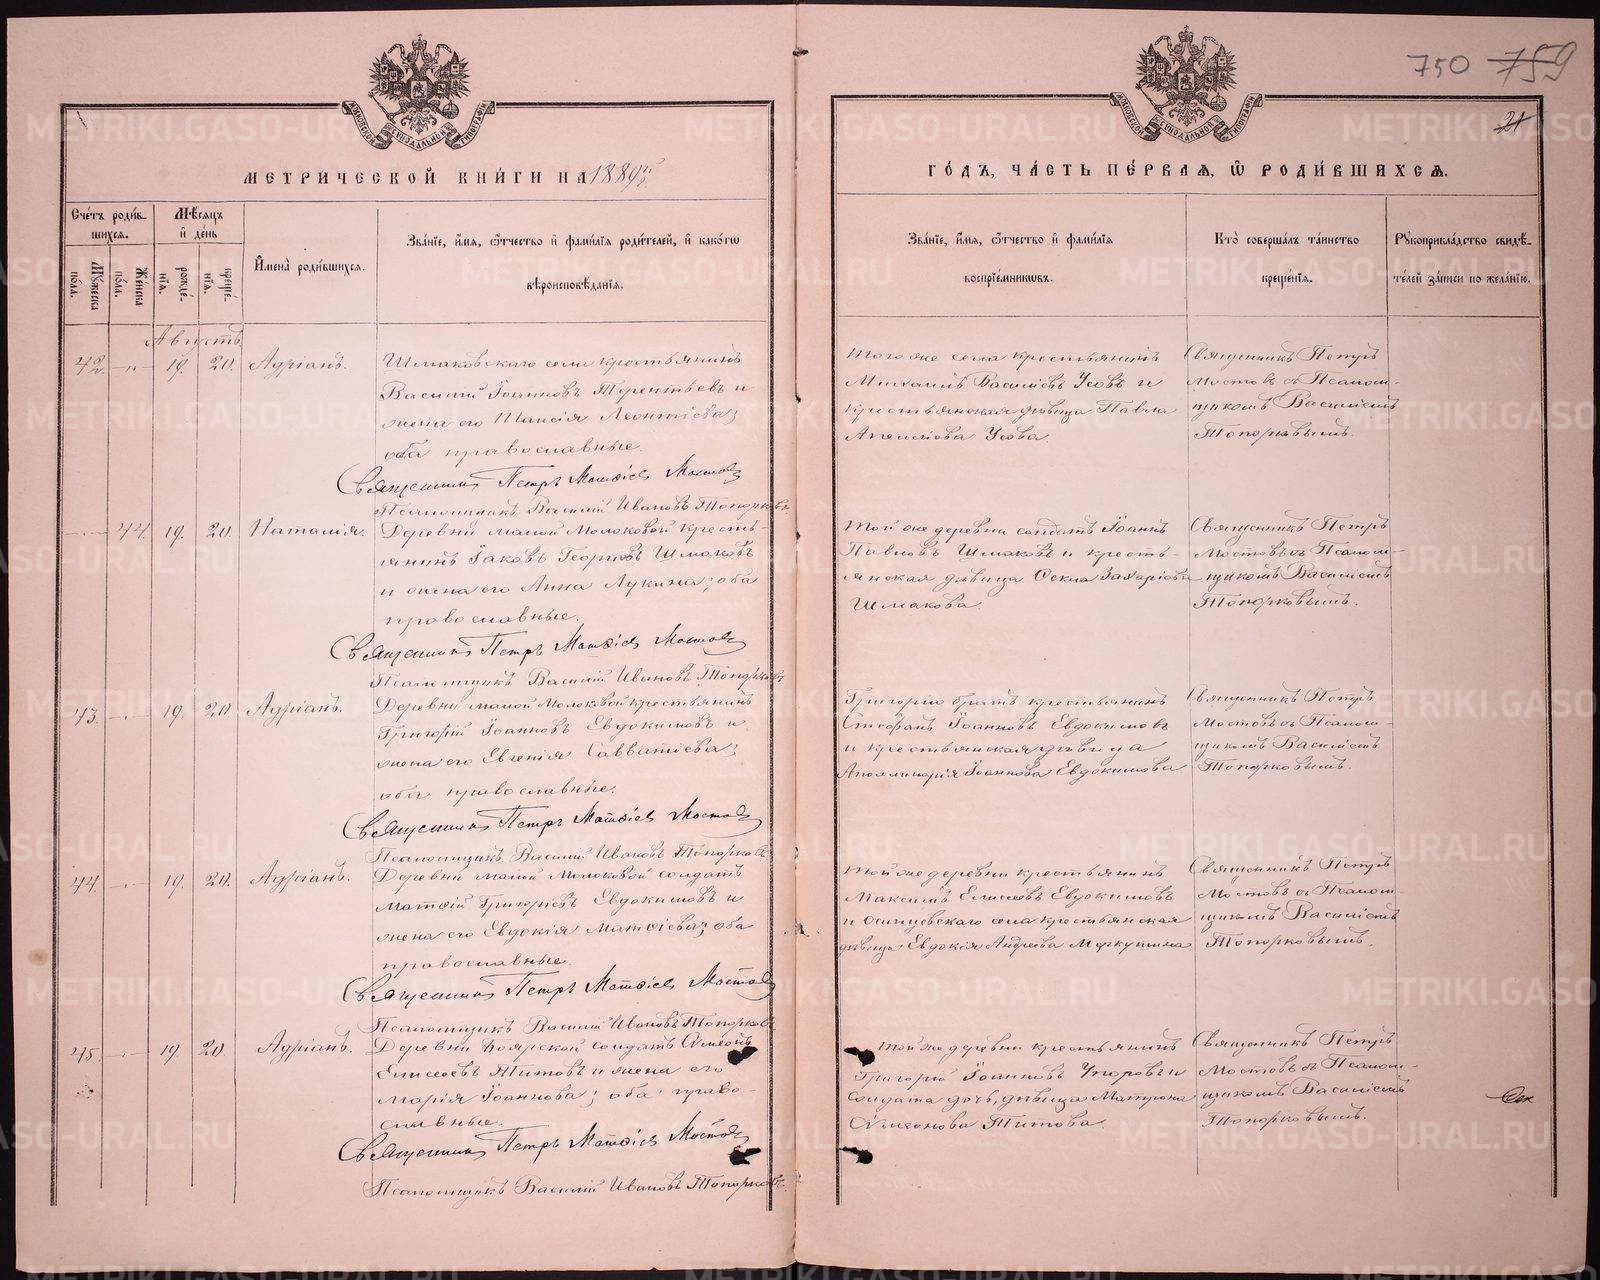 750 759
21
МЕТРИЧЕСКОЙ КНИГИ НА 1889й
ГОДЪ, ЧАСТЬ ПЕРВАЯ, Ѿ РОДИВШИХСЯ.
Счетъ родившихся.
Мужеска пола.
Женска пола.
Мѣсяцъ и день
рожденія.
крещенія.
Имена родившихся.
Званіе, имя, отчество и фамилія родителей, и какогѡ
вѣроисповѣданія.
Званіе, имя, отчество и фамилія
воспріемникѡвъ.
Кто совершалъ таинство
крещенія.
Рукоприкладство свидѣ-
телей записи по желанію.
Августъ
42 —„— 19. 20. Адріанъ.
Шмаковскаго села крестьянинъ
Василій Іоанновъ Терентьевъ и
жена его Таисія Леонтіева;
оба православные.
Священникъ Петръ Матѳіевъ Мостовъ
Псаломщикъ Василій Ивановъ Топорковъ
Того же села крестьянинъ
Михаилъ Василіевъ Усовъ и
крестьянская дѣвица Павла
Усова.
Священникъ Петръ
Мостовъ съ Псалом-
щикомъ Василіемъ
Топорковымъ.
—„— 44. 19. 20. Наталія.
Деревни малой Молоковой кресть-
янинъ Іаковъ Георгіевъ Шмаковъ
и жена его Анна Лукина; оба
православные.
Священникъ Петръ Матѳіевъ Мостовъ
Псаломщикъ Василій Ивановъ Топорковъ
Той же деревни солдатъ Іоаннъ
Павловъ Шмаковъ и кресть-
янская дѣвица Ѳекла Захаріева
Шмакова.
Священникъ Петръ
Мостовъ съ Псалом-
щикомъ Василіемъ
Топорковымъ.
43. —„— 19. 20. Адріанъ.
Деревни малой Молоковой крестьянинъ
Григорій Іоанновъ Евдокимовъ и
жена его Евгенія Савватіева;
оба православные.
Священникъ Петръ Матѳіевъ Мостовъ
Псаломщикъ Василій Ивановъ Топорковъ
Григорію братъ крестьянинъ
Стефанъ Іоанновъ Евдокимовъ
и крестьянская дѣвица
Аполлинарія Іоаннова Евдокимова
Священникъ Петръ
Мостовъ съ Псалом-
щикомъ Василіемъ
Топорковымъ.
44. —„— 19. 20. Адріанъ.
Деревни малой Молоковой солдатъ
Матѳій Григорьевъ Евдокимовъ и
жена его Евдокія Матѳіева; оба
православные.
Священникъ Петръ Матѳіевъ Мостовъ
Псаломщикъ Василій Ивановъ Топорковъ
Той же деревни крестьянинъ
Максимъ Елисеевъ Евдокимовъ
и Осинцевскаго села крестьянская
дѣвица Евдокія Андреева Меркушина
Священникъ Петръ
Мостовъ съ Псалом-
щикомъ Василіемъ
Топорковымъ.
45. —„— 19 20. Адріанъ.
Деревни Боярской солдатъ Сѵмеонъ
Елисеевъ Титовъ и жена его
Марія Іоаннова; оба право-
славные.
Священникъ Петръ Матѳіевъ Мостовъ
Псаломщикъ Василій Ивановъ Топорковъ.
Той же деревни крестьянинъ
Григорій Іоанновъ Упоровъ и
солдата дочь, дѣвица Матрона
Сѵмеонова Титова.
Священникъ Петръ
Мостовъ съ Псалом-
щикомъ Василіемъ
Топорковымъ.
METRIKI.GASO-URAL.RU